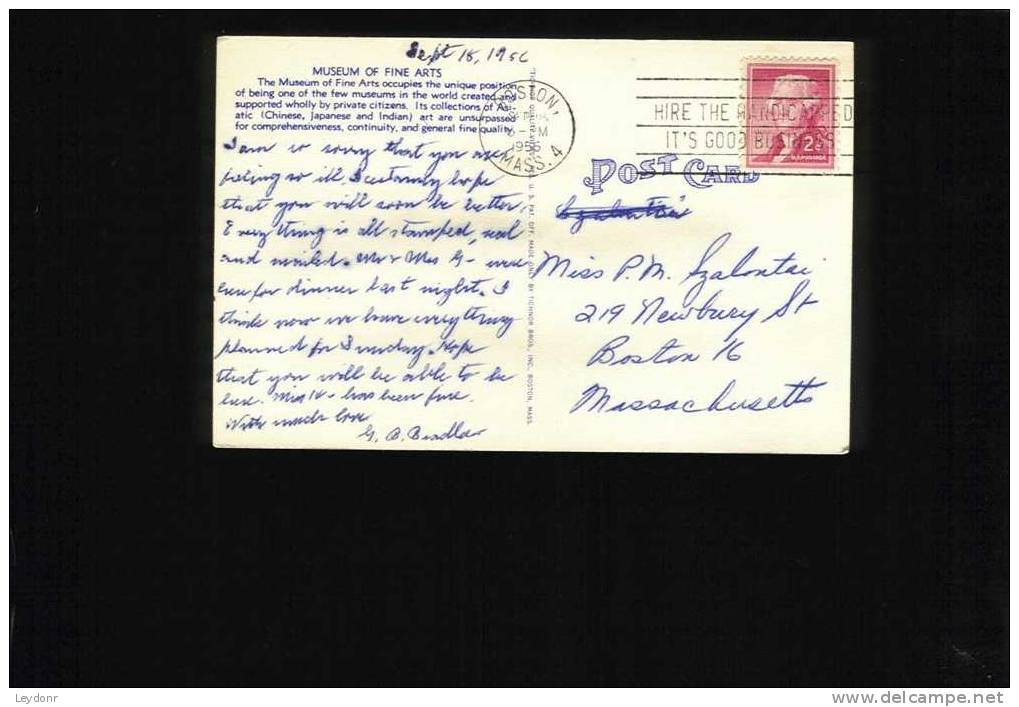 Sept 18, 1956
MUSEUM OF FINE ARTS
The Museum of Fine Arts occupies the unique position
of being one of the few museums in the world created and
supported wholly by private citizens. Its collections of As-
atic (Chinese, Japanese and Indian) art are unsurpassed
for comprehensiveness, continuity, and general fine quality.
I am so sorry that you are
feeling so ill. I certainly hope
that you will soon be better.
Everything is all stamped, seal
and mailed. Mr & Mrs G- were
here for dinner last night. I
think now we have everything
planned for Sunday. Hope
that you will be able to be
here. Miss K- has been fine.
With much love
G. B.
U. S. PAT. OFF. MADE ONLY BY TICHNOR BROS., INC., BOSTON, MASS.
BOSTON,
PM
1956
MASS. 4
HIRE THE HANDICAPPED
IT'S GOOD BUSINESS
2¢
POST CARD
Szalontai
Miss P. M. Szalontai
219 Newbury St
Boston 16
Massachusetts
Leydonr
www.delcampe.net